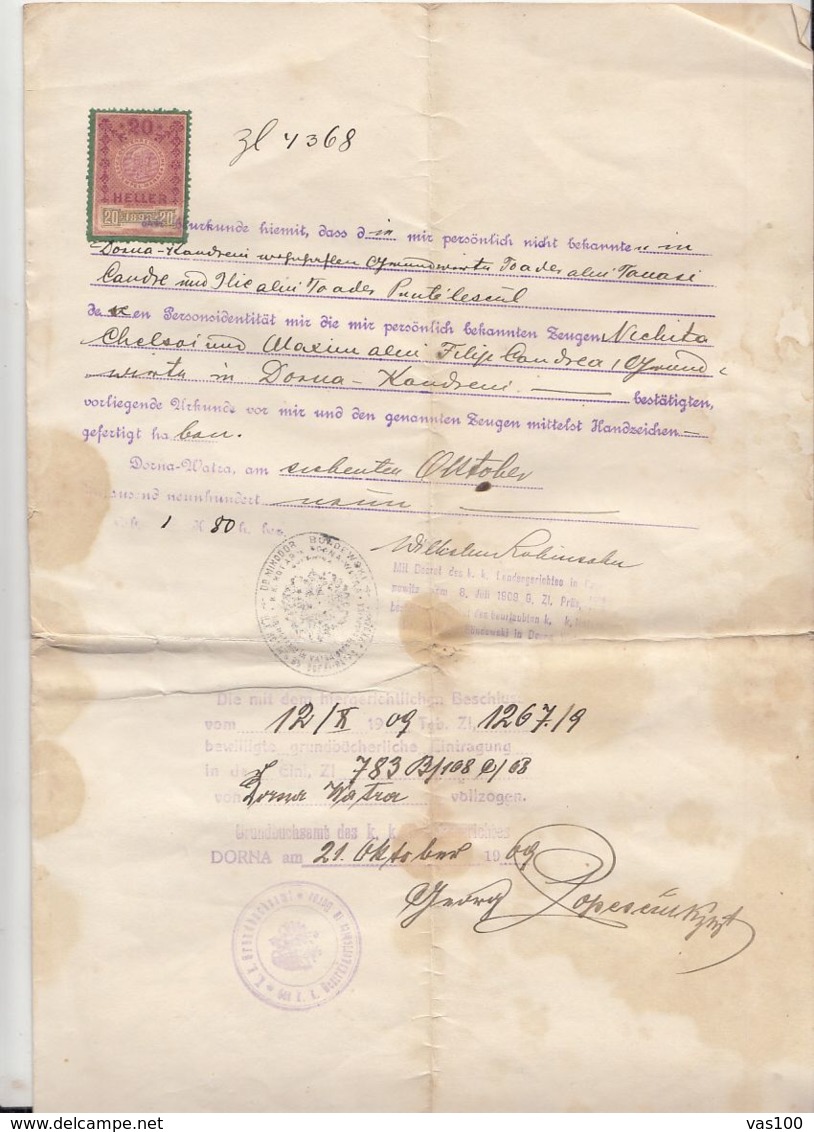 Zl 4368
20
HELLER
20 1898 20
beurkunde hiemit, dass d ie mir persönlich nicht bekannte n in
Dorna-Kandreni wohnhaften Grundwirte Toader alui Tanasi
Candre und Ilie alui Toader Pentilescul
de ren Personsidentität mir die mir persönlich bekannten Zeugen Nichita
Chelsoi und Maxim alui Filip Candrea, Grund
wirte in Dorna-Kandreni. bestätigten,
vorliegende Urkunde vor mir und den genannten Zeugen mittelst Handzeichen
gefertigt ha ben.
Dorna-Watra, am siebenten Oktober
tausend neunhundert neun
1 K 80 h
Wilhelm Rubinsohn
Mit Decret des k. k. Landesgerichtes in
nowitz vom 8. Juli 1909 G. Zl. Präs.
des beurlaubten k. k.
in Dorna
DR NIKODOR BOLDEWSKI
Die mit dem hiergerichtlichen Beschluss
vom 12/X 19 09 Tgb. Zl. 1267/9
bewilligte grundbücherliche Eintragung
in der Einl. Zl. 783 B/108 C/68
von Dorna Watra vollzogen.
Grundbuchsamt des k. k. Bezirksgerichtes
DORNA am 21. Oktober 19 09
Georg Popesciuk
k. k. Grundbuchsamt des k. k. Bezirksgerichtes in Dorna
vas100